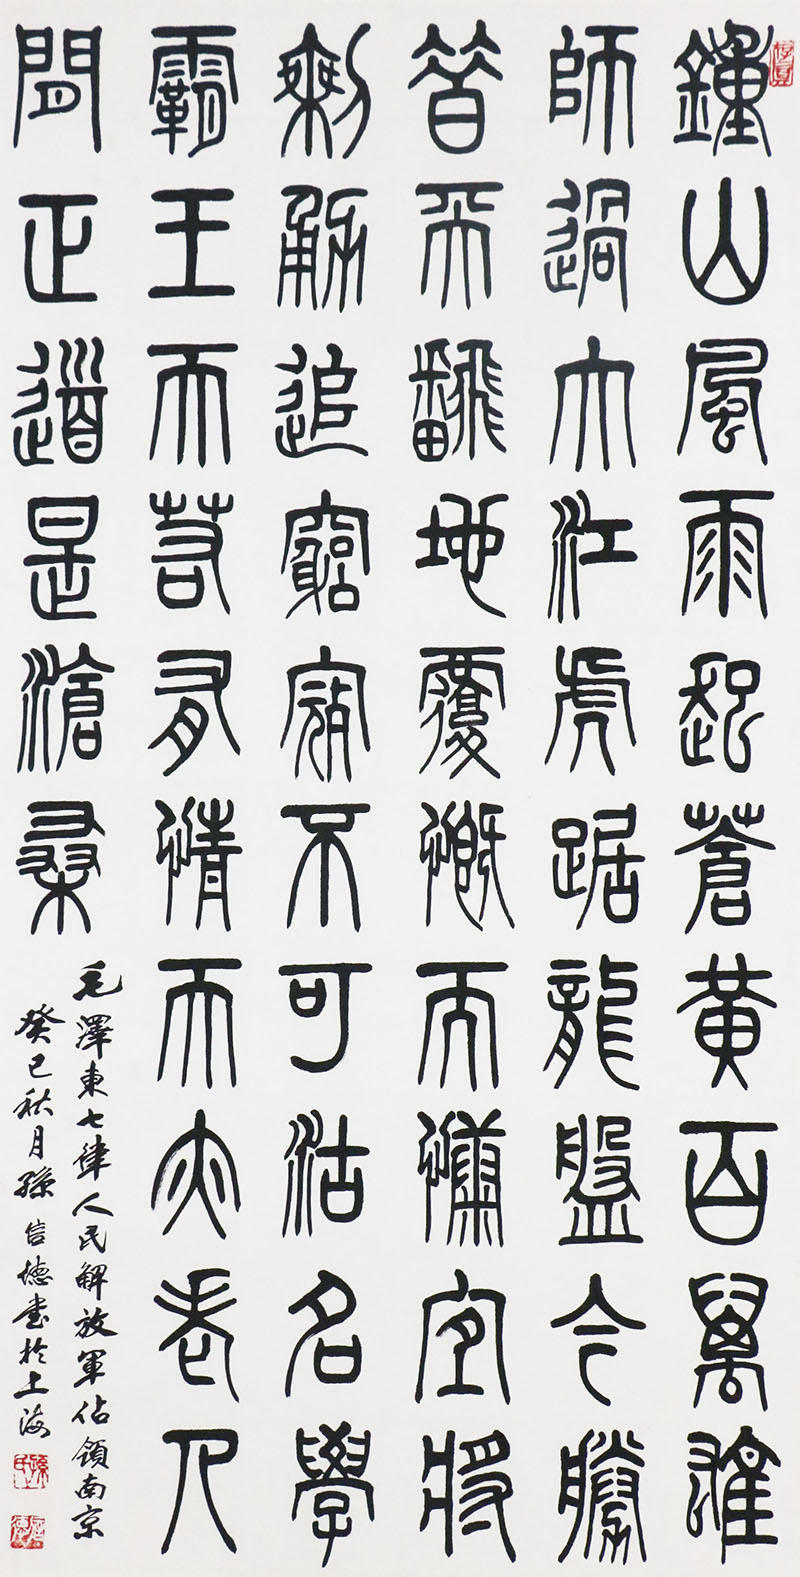 鍾山風雨起蒼黃百萬雄
師過大江虎踞龍盤今勝
昔天翻地覆慨而慷宜將
剩勇追窮寇不可沽名學
霸王天若有情天亦老人
間正道是滄桑
毛澤東七律人民解放軍佔領南京
癸巳秋月孫信德書於上海